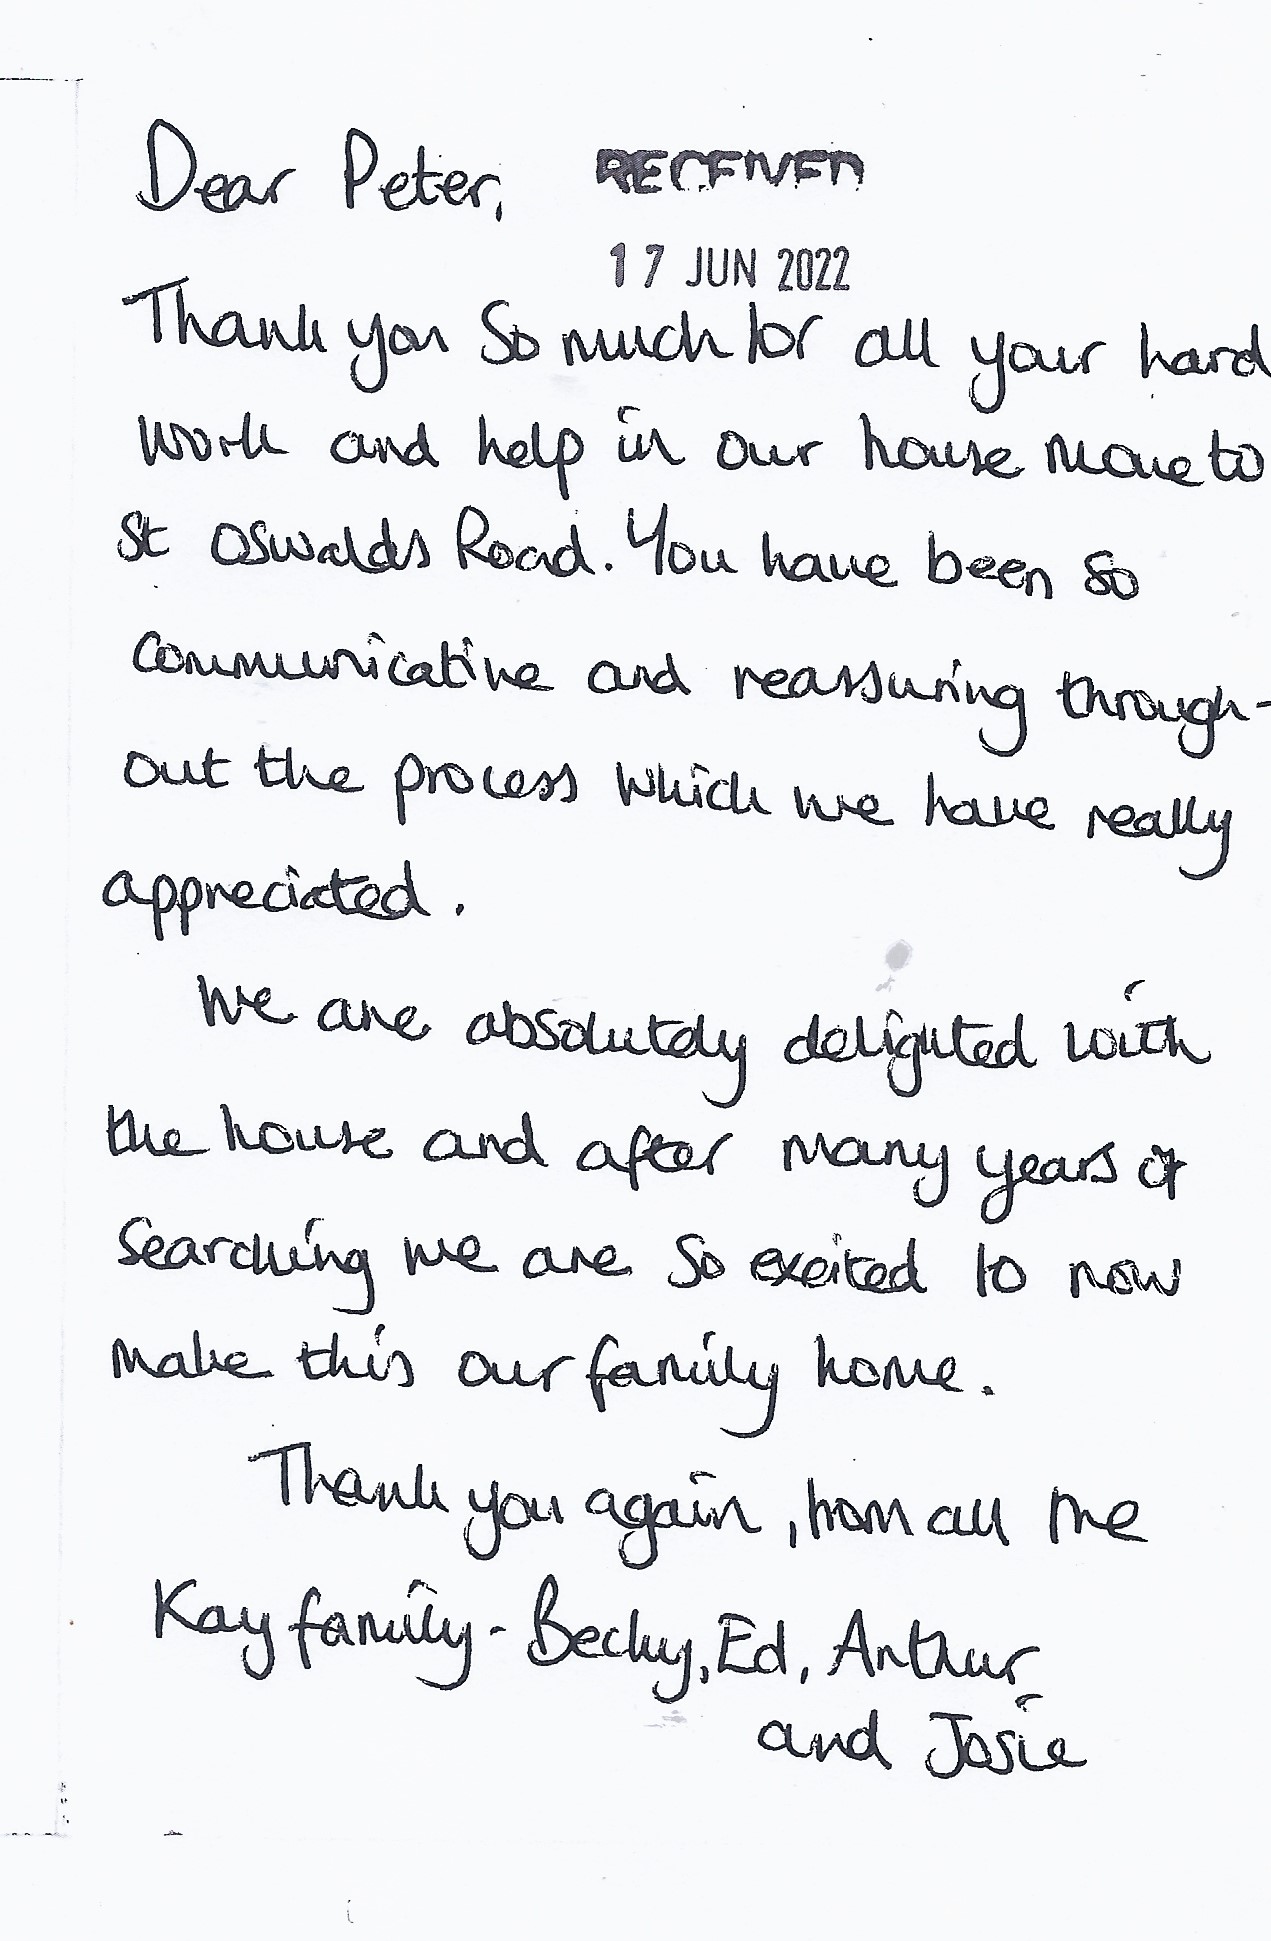 Dear Peter,
RECEIVED
17 JUN 2022
Thank you so much for all your hard
work and help in our house move to
St Oswalds Road. You have been so
communicative and reassuring through-
out the process which we have really
appreciated.
We are absolutely delighted with
the house and after many years of
searching we are so excited to now
make this our family home.
Thank you again, from all the
Kay family - Becky, Ed, Arthur
and Josie